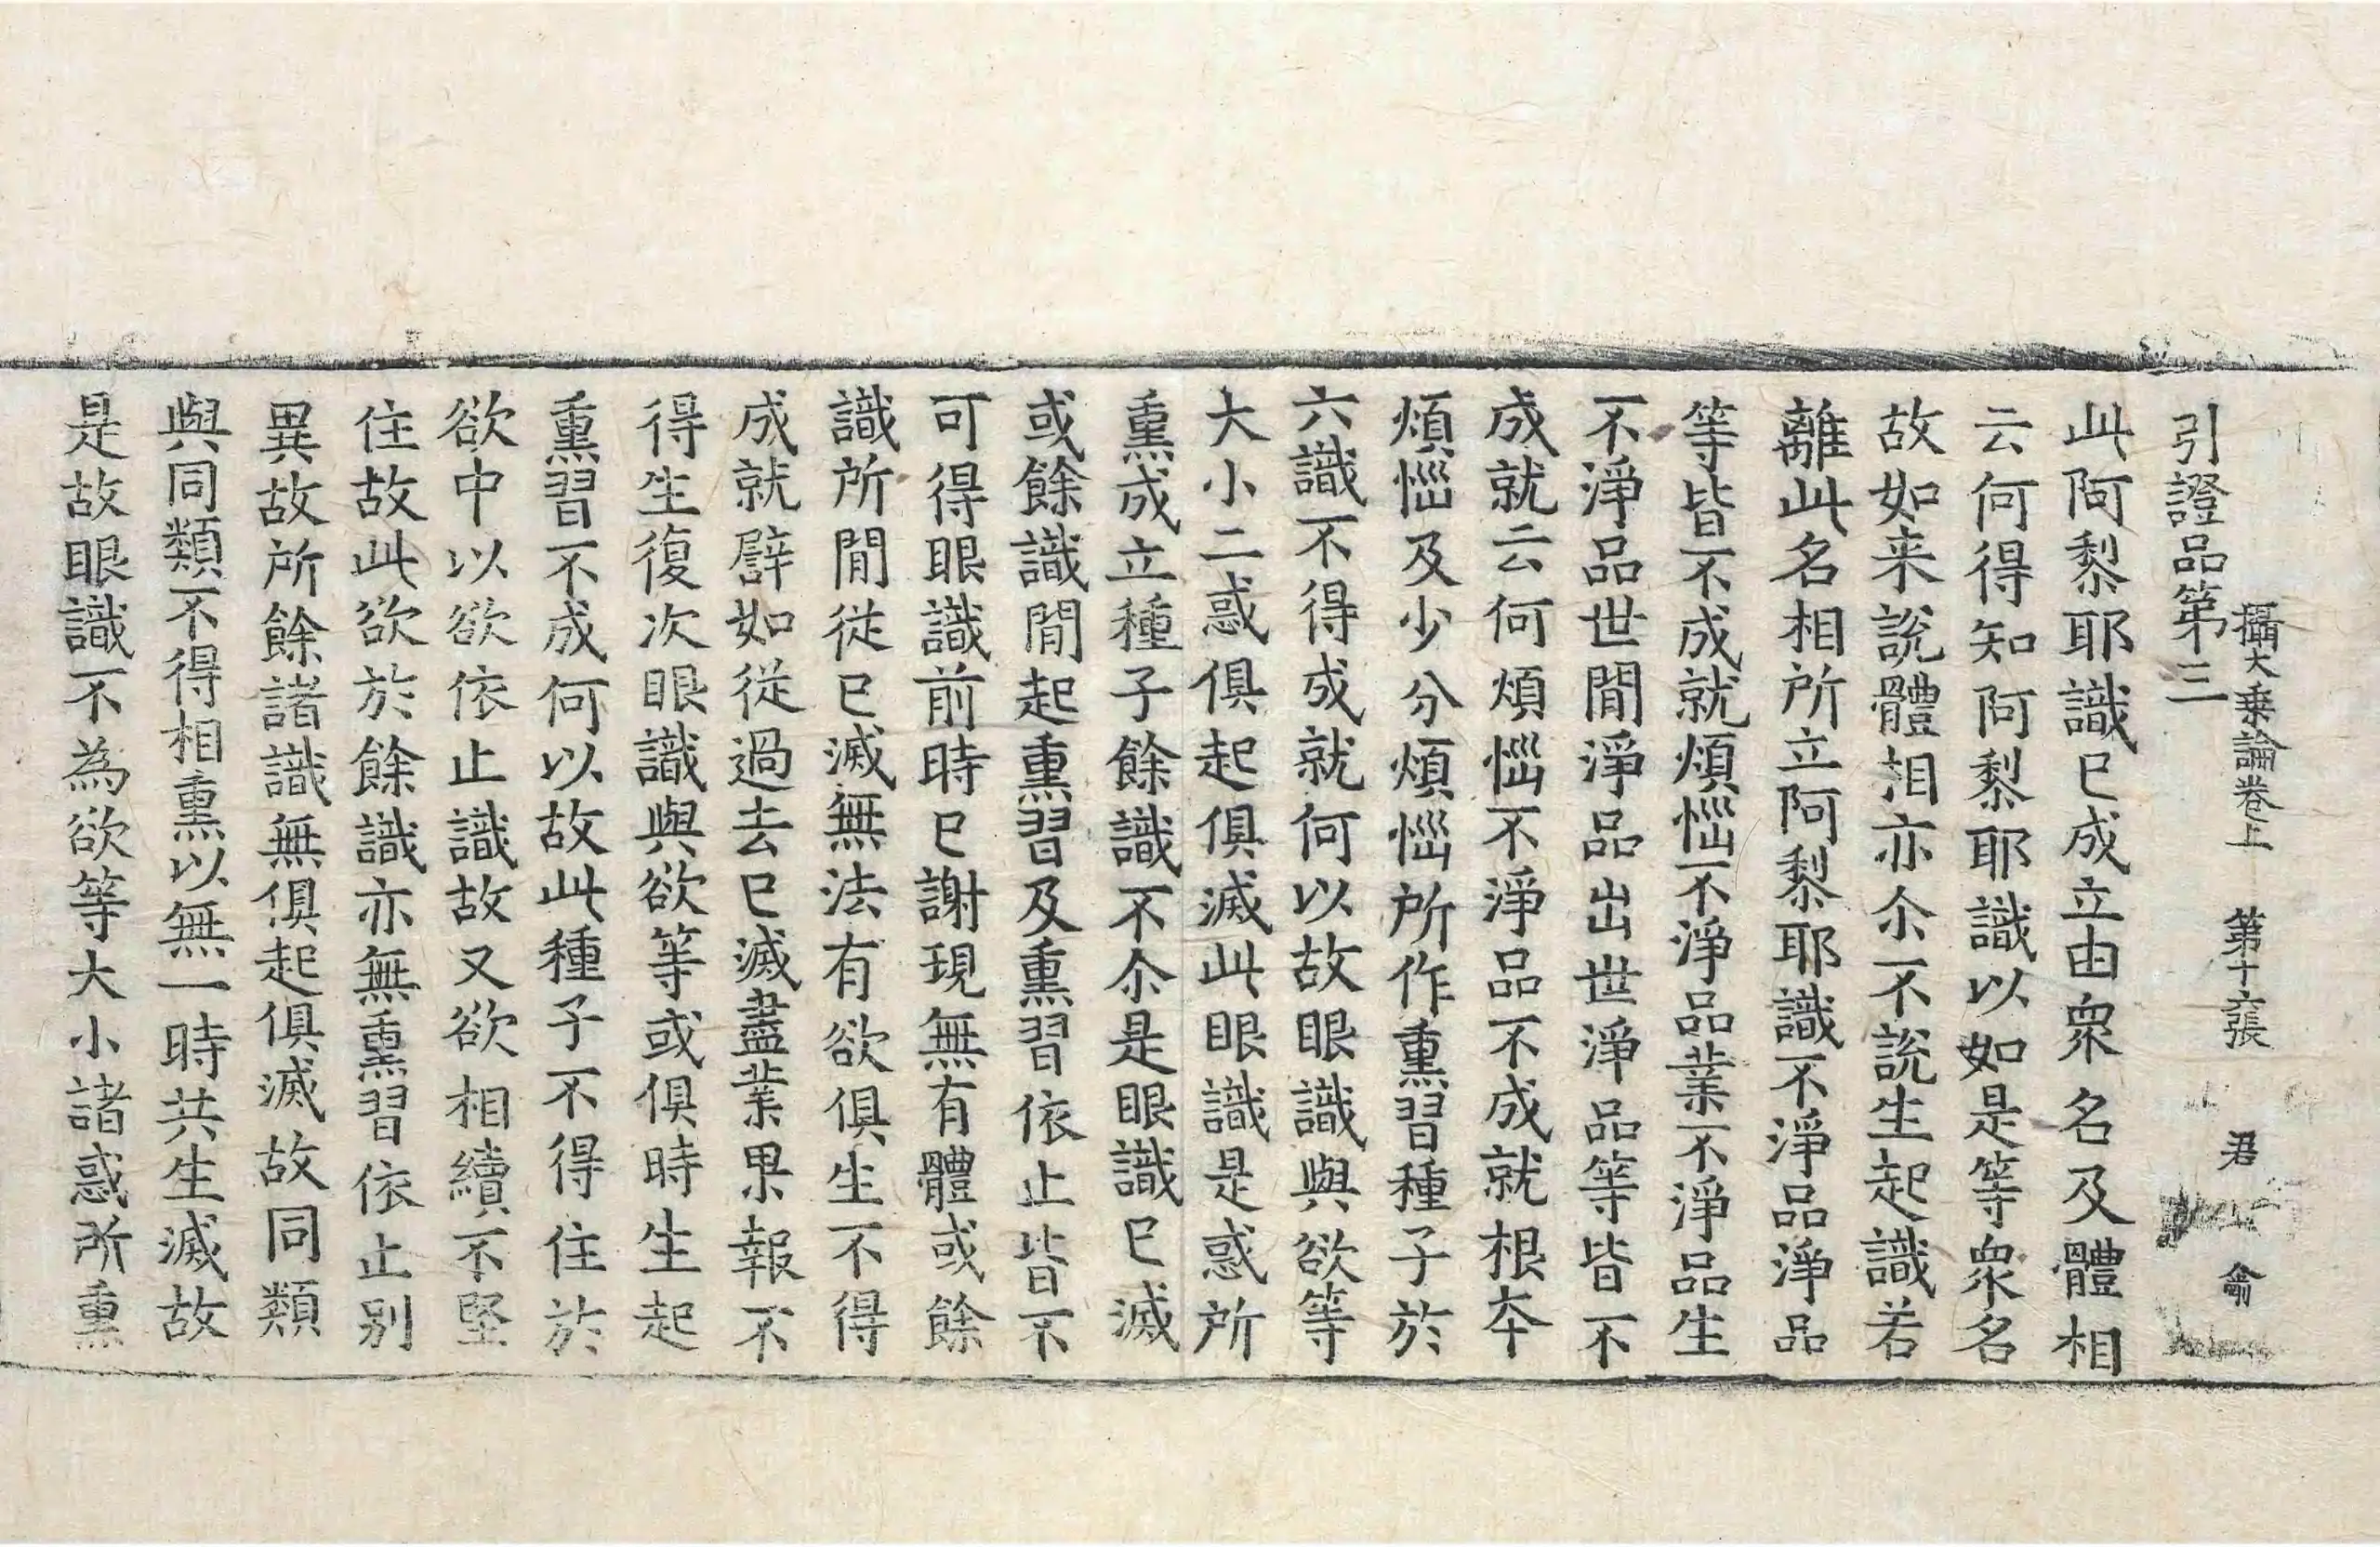 攝大乗論卷上 第十六張 君 龠
引證品第三
此阿黎耶識已成立由衆名及體相
云何得知阿黎耶識以如是等衆名
故如来説體相亦尒不説生起識若
離此名相所立阿黎耶識不淨品淨品
等皆不成就煩惱不淨品業不淨品生
不淨品世間淨品出世淨品等皆不
成就云何煩惱不淨品不成就根夲
煩惱及少分煩惱所作熏習種子於
六識不得成就何以故眼識與欲等
大小二惑俱起俱滅此眼識是惑所
熏成立種子餘識不尒是眼識已滅
或餘識間起熏習及熏習依止皆不
可得眼識前時已謝現無有體或餘
識所間從已滅無法有欲俱生不得
成就譬如從過去已滅盡業果報不
得生復次眼識與欲等或俱時生起
熏習不成何以故此種子不得住於
欲中以欲依止識故又欲相續不堅
住故此欲於餘識亦無熏習依止别
異故所餘諸識無俱起俱滅故同類
與同類不得相熏以無一時共生滅故
是故眼識不為欲等大小諸惑所熏